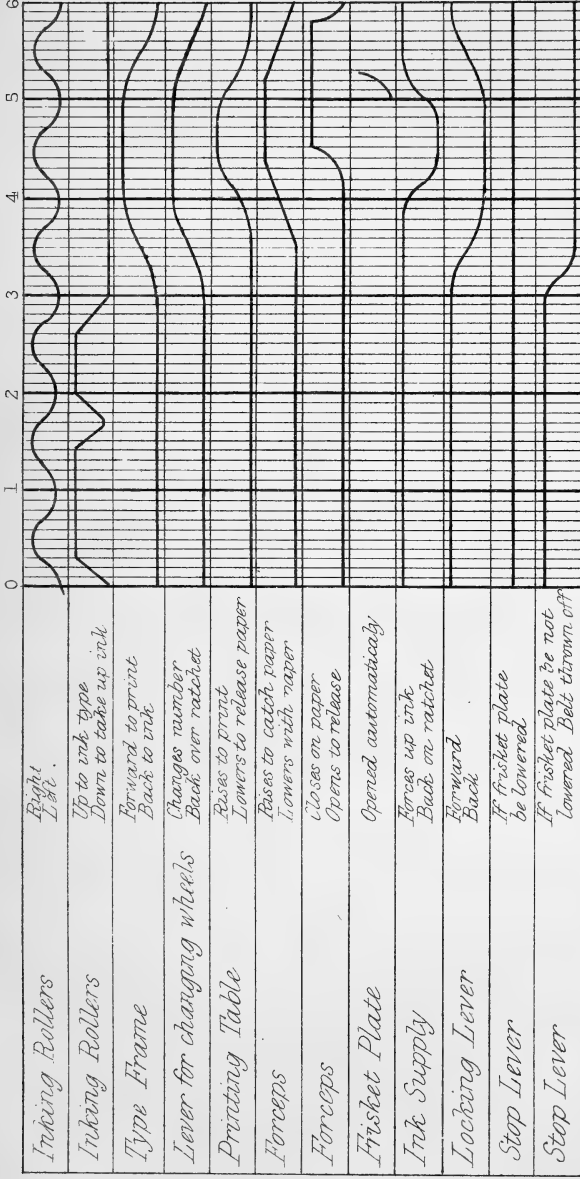 0 1 2 3 4 5 6
Inking Rollers
Right
Left.
Inking Rollers
Up to ink type
Down to take up ink
Type Frame
Forward to print
Back to ink
Lever for changing wheels
Changes number
Back over ratchet
Printing Table
Rises to print
Lowers to release paper
Forceps
Rises to catch paper
Lowers with paper
Forceps
Closes on paper
Opens to release
Frisket Plate
Opened automaticaly
Ink Supply
Forces up ink
Back on ratchet
Locking Lever
Forward
Back
Stop Lever
If frisket plate
be lowered
Stop Lever
If frisket plate be not
lowered Belt thrown off